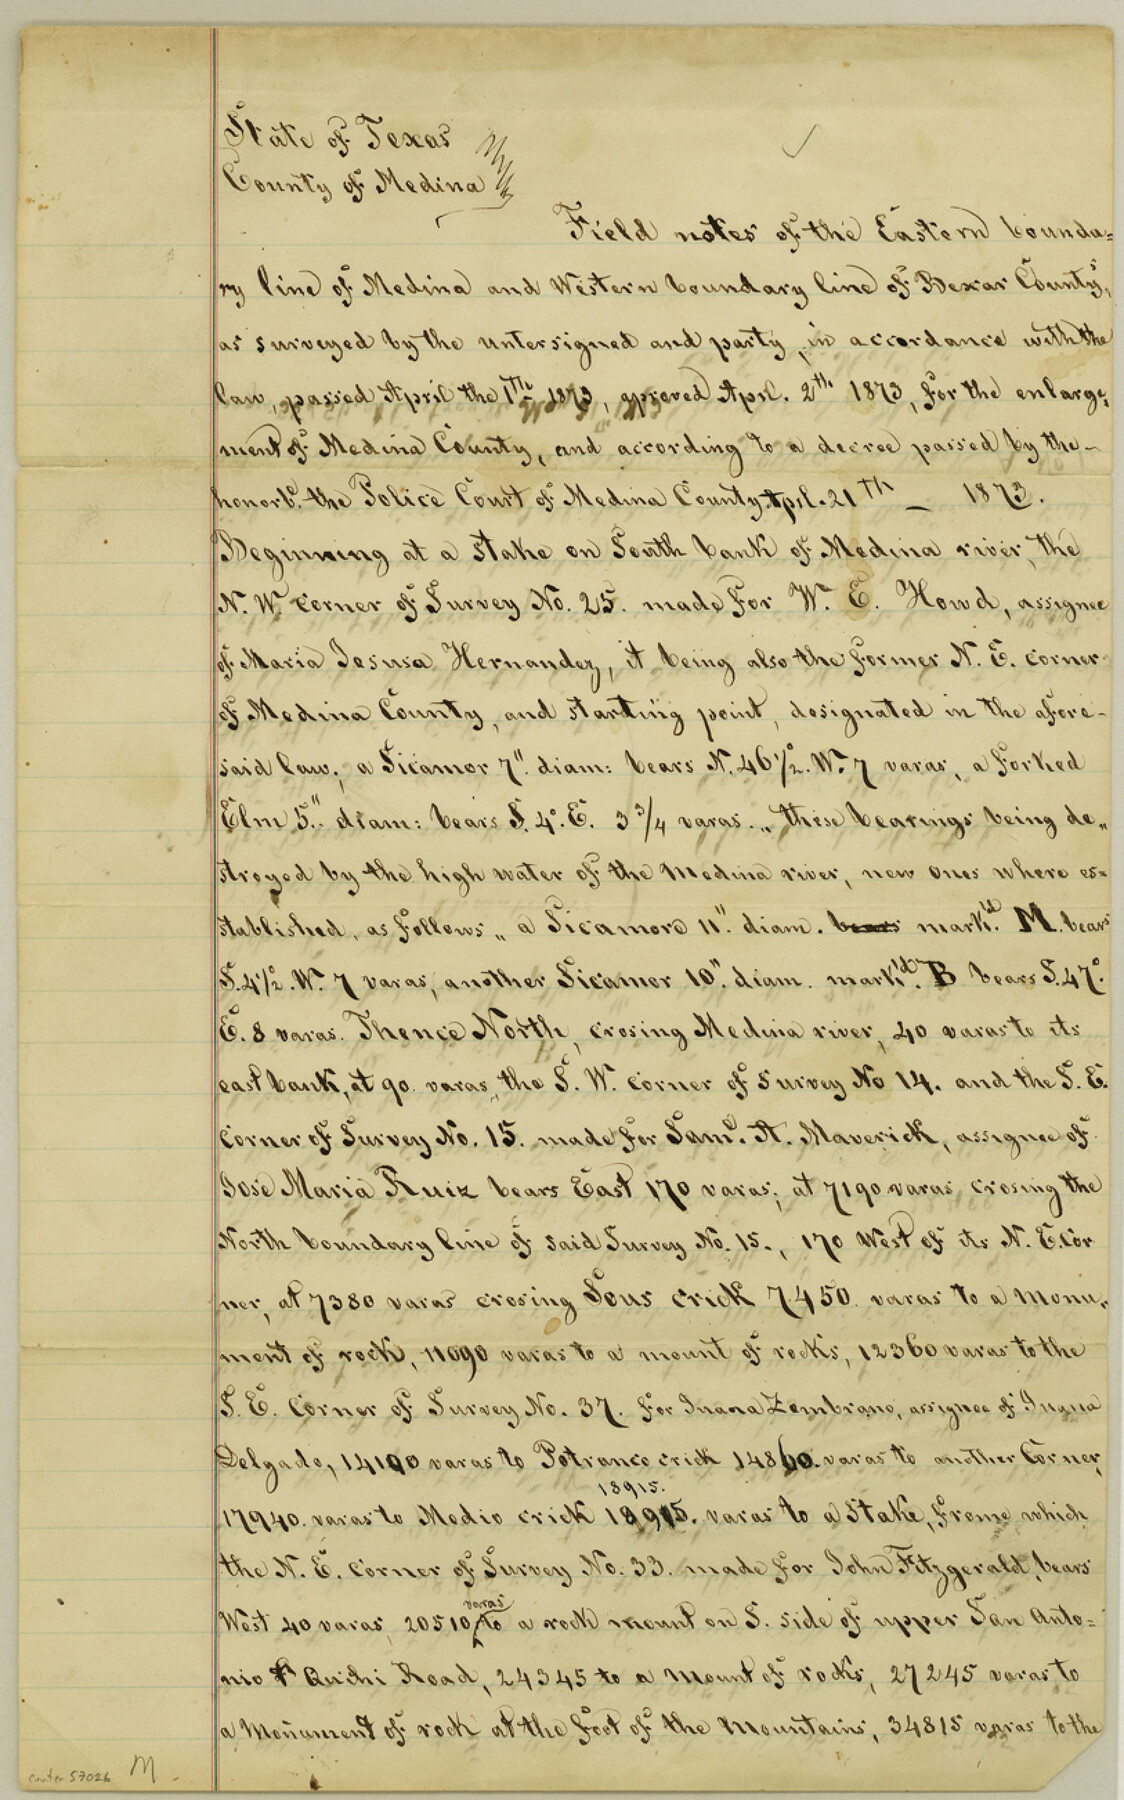 State of Texas
County of Medina
Field notes of the Eastern bounda=
ry line of Medina and Western boundary line of Bexar County's,
as surveyed by the untersigned and party, in accordance with the
law, passed April the 1th 1873, apreved Apr. 2th 1873, for the enlarge,
ment of Medina County, and according to a decree passed by the -
honorb. the Police Court of Medina County Apil. 21th _ 1873.
Beginning at a stake on South bank of Medina river, the
N. W. corner of Survey No. 25. made for W. E. Howd, assignee
of Maria Jesusa Hernandez, it being also the former N. E. corner
of Medina County, and starting point, designated in the afore-
said law; a Sicamor 7". diam: bears N. 46½°. W. 7 varas, a forked
Elm 5". diam: bears S. 4°. E. 3 3/4 varas. „ these bearings being de„
stroyed by the high water of the Medina river, new ones where es=
stablished, as follows „ a Sicamore 11". diam. bears mark'd. M. bears
S. 4½°. W. 7 varas, another Sicamor 10". diam. mark'd. B bears S. 47°.
E. 8 varas. Thence North, crosing Medina river, 40 varas to its
east bank, at 90. varas, the S. W. corner of survey No 14. and the S. E.
corner of Survey No. 15. made for Saml. A. Maverick, assignee of
Jose Maria Ruiz bears East 170 varas; at 7190 varas crosing the
North boundary line of said Survey No. 15., 170 West of its N. E. Cor
ner, at 7380 varas crosing Sous crick 7450. varas to a monu„
ment of rock, 11090 varas to a mount of rocks, 12360 varas to the
S. E. Corner of Survey No. 37. for Juana Zembrano, assignee of Juana
Delgado, 14190 varas to Potranco crick 14860. varas to another Corner,
18915.
17940. varas to Medio crick 18915. varas to a Stake, frome which
the N. E. corner of Survey No. 33. made for John Fitzgerald, bears
varas
West 40 varas, 20510 to a rock mount on S. side of upper San Anto=
nio & Quihi Road, 24345 to a Mount of rocks, 27245 varas to
a Monument of rock at the foot of the Mountains, 34815 varas to the
counter 57026 M